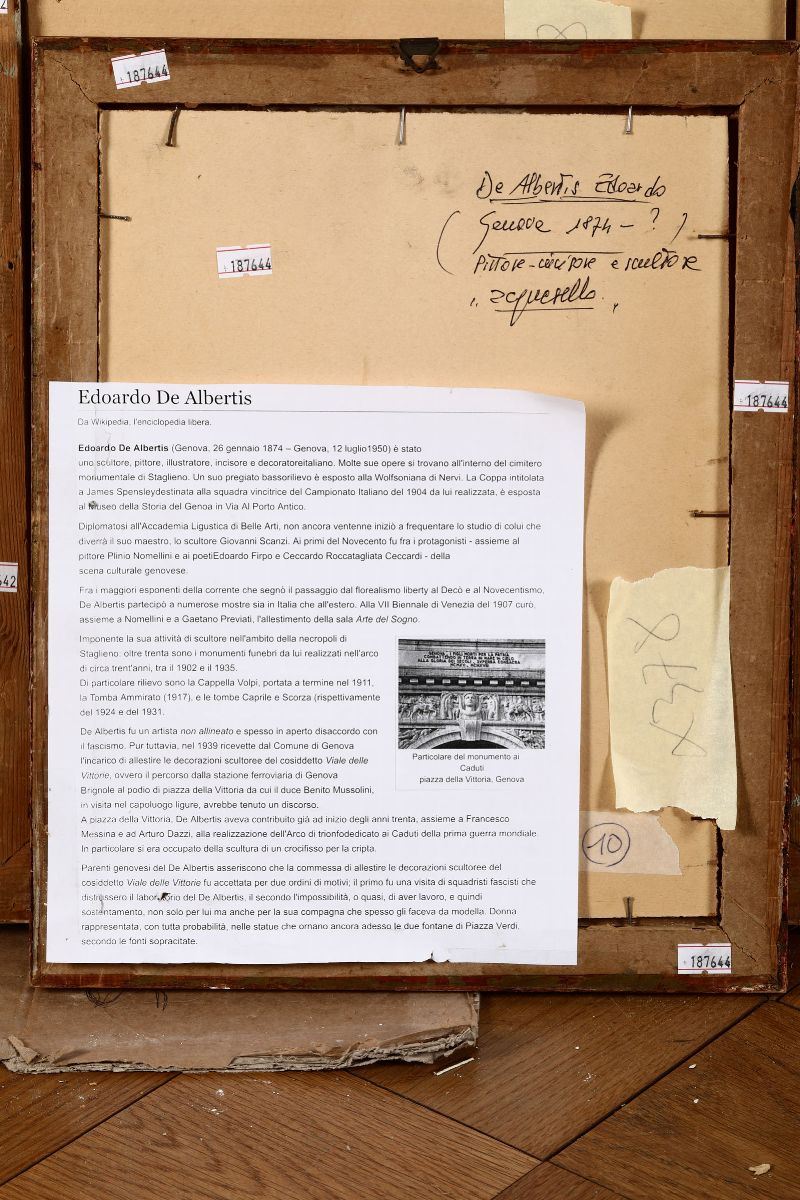 187644
De Albertis Edoardo
(Genova 1874 - ?)
Pittore - incisore e scultore
" acquerello "
187644
187644
Edoardo De Albertis
Da Wikipedia, l'enciclopedia libera.
Edoardo De Albertis (Genova, 26 gennaio 1874 – Genova, 12 luglio1950) è stato
uno scultore, pittore, illustratore, incisore e decoratoreitaliano. Molte sue opere si trovano all'interno del cimitero
monumentale di Staglieno. Un suo pregiato bassorilievo è esposto alla Wolfsoniana di Nervi. La Coppa intitolata
a James Spensleydestinata alla squadra vincitrice del Campionato Italiano del 1904 da lui realizzata, è esposta
al Museo della Storia del Genoa in Via Al Porto Antico.
Diplomatosi all'Accademia Ligustica di Belle Arti, non ancora ventenne iniziò a frequentare lo studio di colui che
diverrà il suo maestro, lo scultore Giovanni Scanzi. Ai primi del Novecento fu fra i protagonisti - assieme al
pittore Plinio Nomellini e ai poetiEdoardo Firpo e Ceccardo Roccatagliata Ceccardi - della
scena culturale genovese.
Fra i maggiori esponenti della corrente che segnò il passaggio dal florealismo liberty al Decò e al Novecentismo,
De Albertis partecipò a numerose mostre sia in Italia che all'estero. Alla VII Biennale di Venezia del 1907 curò,
assieme a Nomellini e a Gaetano Previati, l'allestimento della sala Arte del Sogno.
Imponente la sua attività di scultore nell'ambito della necropoli di
Staglieno: oltre trenta sono i monumenti funebri da lui realizzati nell'arco
di circa trent'anni, tra il 1902 e il 1935.
Di particolare rilievo sono la Cappella Volpi, portata a termine nel 1911,
la Tomba Ammirato (1917), e le tombe Caprile e Scorza (rispettivamente
del 1924 e del 1931.
De Albertis fu un artista non allineato e spesso in aperto disaccordo con
il fascismo. Pur tuttavia, nel 1939 ricevette dal Comune di Genova
l'incarico di allestire le decorazioni scultoree del cosiddetto Viale delle
Vittorie, ovvero il percorso dalla stazione ferroviaria di Genova
Brignole al podio di piazza della Vittoria da cui il duce Benito Mussolini,
in visita nel capoluogo ligure, avrebbe tenuto un discorso.
GENOVA · I FIGLI MORTI PER LA PATRIA
COMBATTENDO IN TERRA IN MARE IN CIELO
ALLA GLORIA DEI SECOLI SUPERBA CONSACRA
Particolare del monumento ai
Caduti
piazza della Vittoria, Genova
A piazza della Vittoria, De Albertis aveva contribuito già ad inizio degli anni trenta, assieme a Francesco
Messina e ad Arturo Dazzi, alla realizzazione dell'Arco di trionfodedicato ai Caduti della prima guerra mondiale.
In particolare si era occupato della scultura di un crocifisso per la cripta.
Parenti genovesi del De Albertis asseriscono che la commessa di allestire le decorazioni scultoree del
cosiddetto Viale delle Vittorie fu accettata per due ordini di motivi; il primo fu una visita di squadristi fascisti che
distrussero il laboratorio del De Albertis, il secondo l'impossibilità, o quasi, di aver lavoro, e quindi
sostentamento, non solo per lui ma anche per la sua compagna che spesso gli faceva da modella. Donna
rappresentata, con tutta probabilità, nelle statue che ornano ancora adesso le due fontane di Piazza Verdi,
secondo le fonti sopracitate.
10
187644